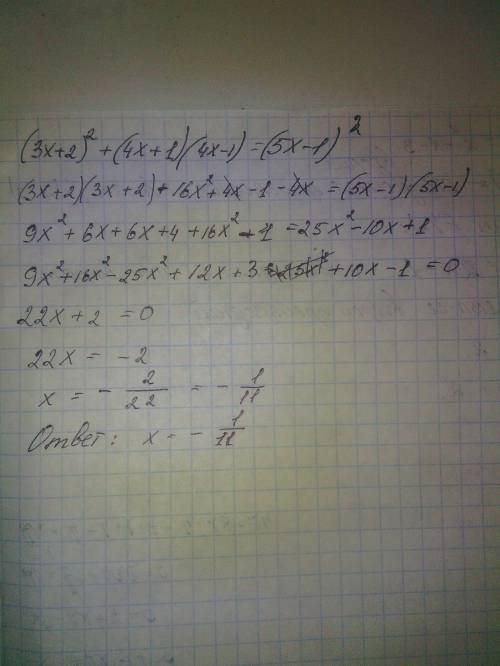 (3x+2)² + (4x+1)(4x-1) = (5x-1)²
(3x+2)(3x+2) + 16x² + 4x - 1 - 4x = (5x-1)(5x-1)
9x² + 6x + 6x + 4 + 16x² - 1 = 25x² - 10x + 1
9x² + 16x² - 25x² + 12x + 3 + 10x - 1 = 0
22x + 2 = 0
22x = -2
x = - 2/22 = - 1/11
Ответ: x = - 1/11